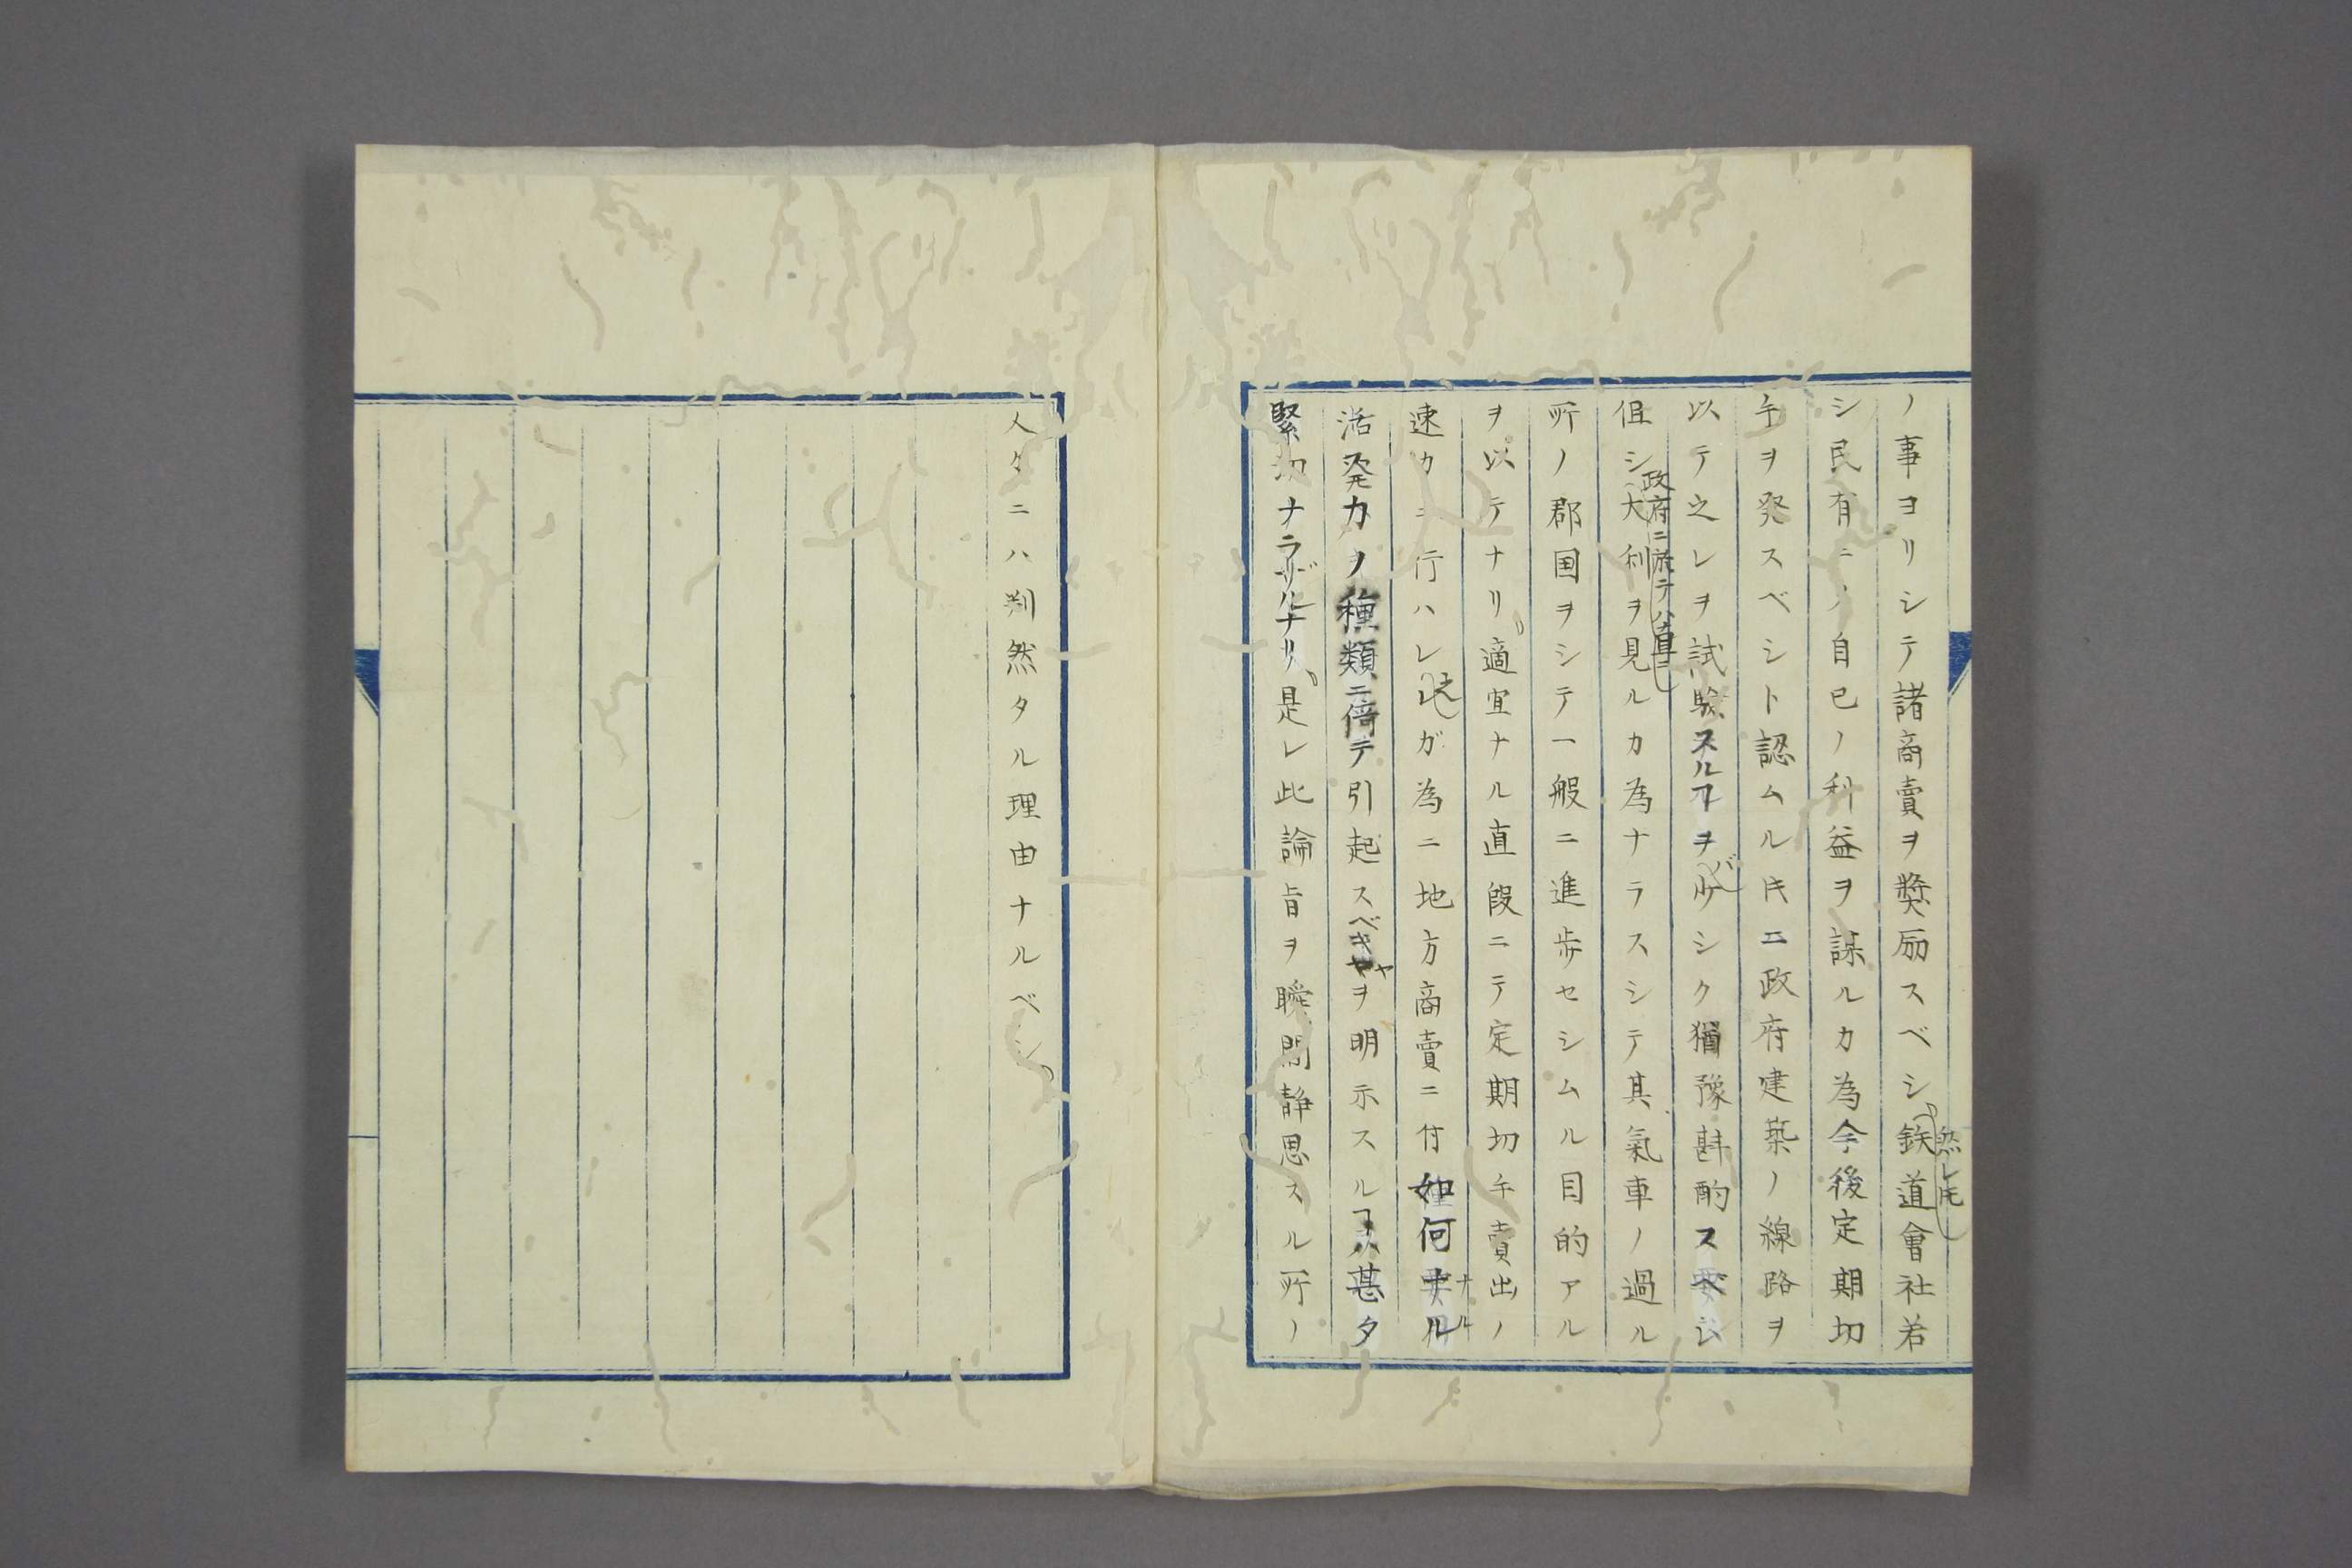 ノ事ヨリシテ諸商賣ヲ奬励スベシ然レ𪜈鉄道會社若
シ民有ニ自己ノ利益ヲ謀ルカ為今後定期切
手ヲ発スベシト認ムル𪜈ニ政府建築ノ線路ヲ
以テ之レヲ試験スルヿヲバ少シク猶豫斟酌スベシ
但シ政府ニ於テハ直ニ大利ヲ見ルカ為ナラスシテ其氣車ノ過ル
所ノ郡国ヲシテ一般ニ進歩セシムル目的アル
ヲ以テナリ適宜ナル直段ニテ定期切手賣出ノ
速カニ行ハレシガ為ニ地方商賣ニ付如何ナル
活発力ノ種類ニ倍テ引起スベキヤヲ明示スルヿハ甚タ
緊切ナラザルナリ是レ此論旨ヲ瞬間静思スル所ノ
人々ニハ判然タル理由ナルベシ